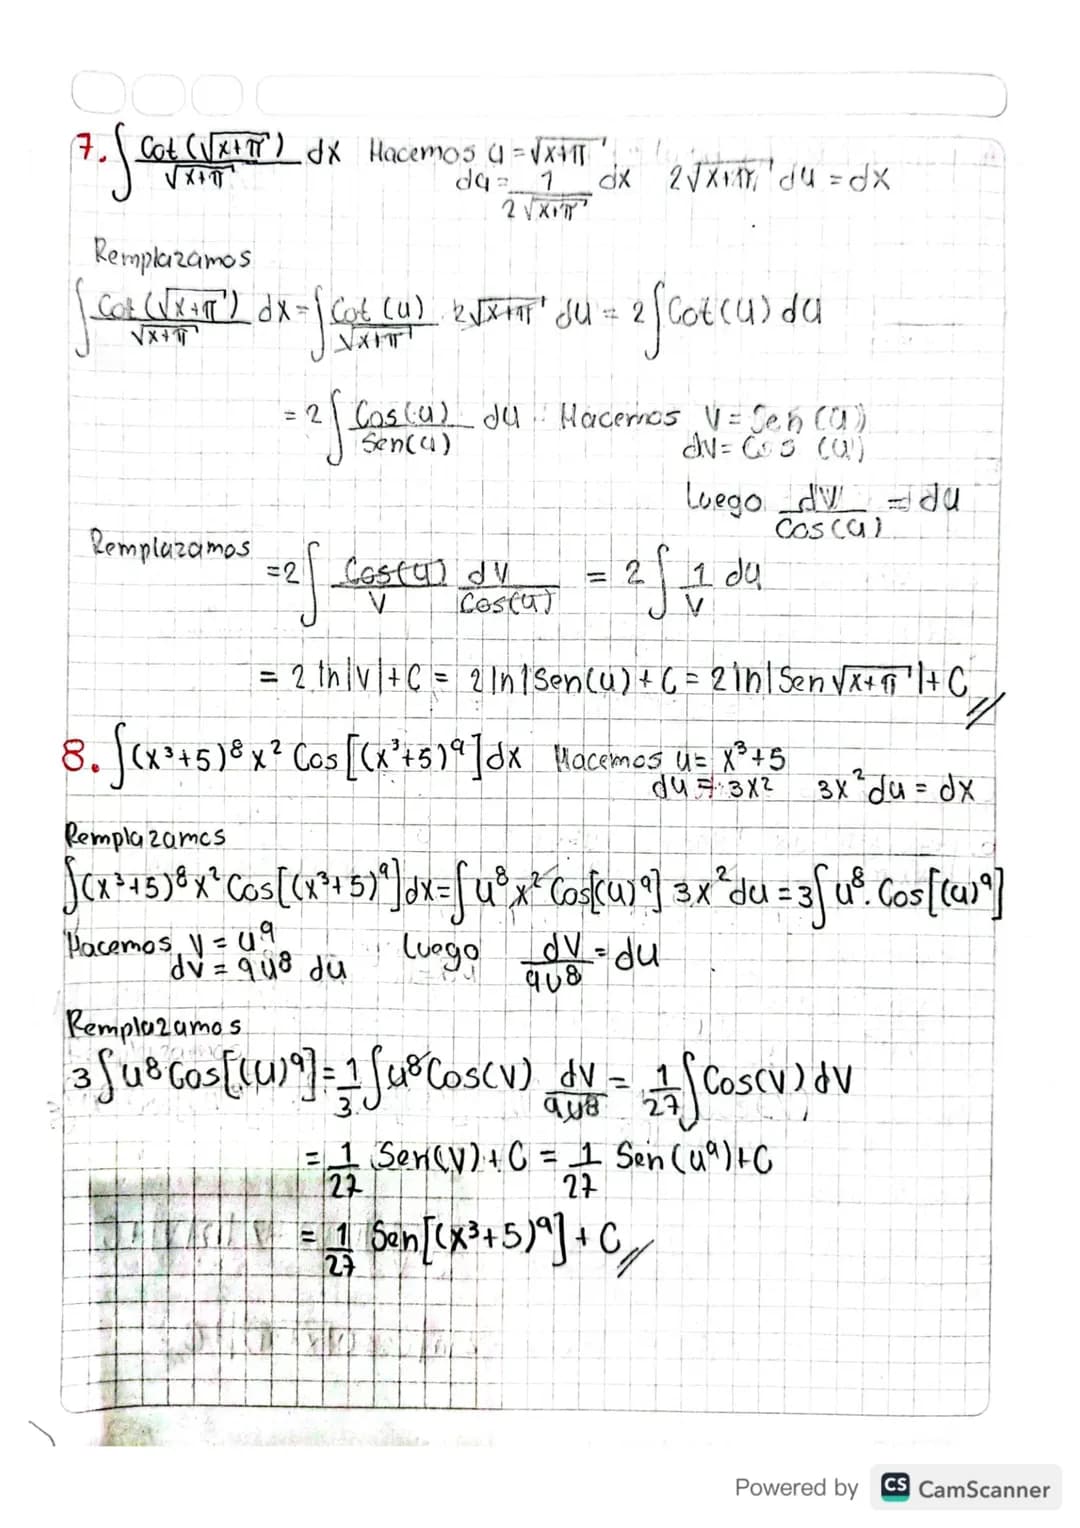 7. ∫ Cot (√x+π) / √x+π dx Hacemos u = √x+π
du = 1 / 2√x+π dx 2√x+π du = dx
Remplazamos
∫ Cot (√x+π) / √x+π dx = ∫ Cot (u) / √x+π · 2√x+π du = 2 ∫ Cot (u) du
= 2 ∫ Cos(u) / Sen(u) du Hacemos V = Sen (u)
dv = Cos (u)
Luego dv / Cos(u) = du
Remplazamos = 2 ∫ Cos(u) / V dv / Cos(u) = 2 ∫ 1 / V du
= 2 ln|V| + C = 2 ln|Sen(u) + C = 2 ln|Sen √x+π| + C //
8. ∫(x³+5)⁸ x² Cos [(x³+5)⁹] dx Hacemos u = x³+5
du = 3x² 3x² du = dx
Remplazamos
∫(x³+5)⁸ x² Cos[(x³+5)⁹] dx = ∫ u⁸ x² Cos[(u)⁹] 3x² du = 3 ∫ u⁸. Cos [(u)⁹]
Hacemos V = u⁹ Luego dv / 9u⁸ = du
dv = 9u⁸ du
Remplazamos
3 ∫ u⁸ Cos[(u)⁹] = 1/3 ∫ u⁸ Cos(v) dv / 9u⁸ = 1/27 ∫ Cos(v) dv
= 1/27 Sen(v) + C = 1/27 Sen (u⁹) + C
= 1/27 Sen [(x³+5)⁹] + C //
Powered by CS CamScanner